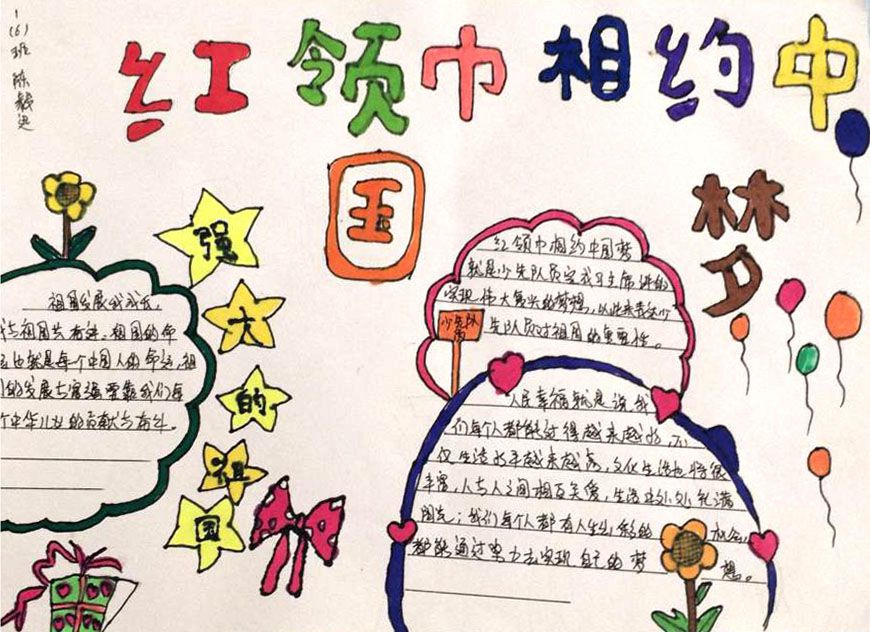 1(6)班 陈
红领巾相约中
国
梦
强大的祖国
祖国发展我成长,
我与祖国共奋进。祖国的命
运也就是每个中国人的命运,祖
国的发展与富强要靠我们每
个中华儿女的贡献与奋斗。
红领巾相约中国梦
就是少先队员实我习主席讲的
实现伟大复兴的梦想,以此来表达少
先队员对祖国的重要性。
少先队
人民幸福就是说我
们每个人都能过得越来越好,不
仅生活水平越来越高,文化生活也将很
丰富,人与人之间相互关爱,生活处处充满
阳光;我们每个人都有人生出彩的机会,
都能通过努力去实现自己的梦想。